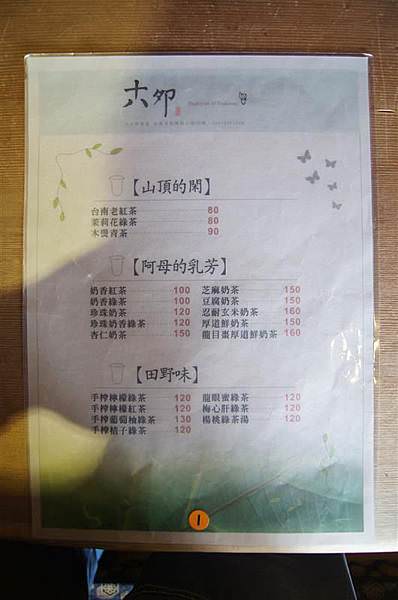 六夘
【山頂的閑】
台南老紅茶 80
茉莉花綠茶 80
木瓷青茶 90
【阿母的乳芳】
奶香紅茶 100 芝麻奶茶 150
奶香綠茶 100 豆腐奶茶 150
珍珠奶茶 120 忍耐玄米奶茶 160
珍珠奶香綠茶 120 厚道鮮奶茶 150
杏仁奶茶 150 龍目棗厚道鮮奶茶 160
【田野味】
手搾檸檬綠茶 120 龍眼蜜綠茶 120
手搾檸檬紅茶 120 梅心肝綠茶 120
手搾葡萄柚綠茶 130 楊桃綠茶湯 120
手搾桔子綠茶 120
1